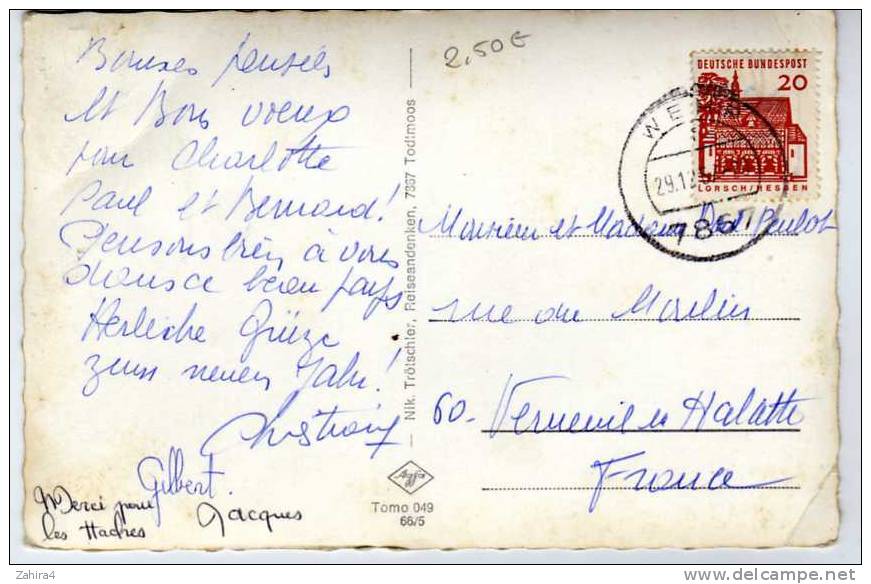 Bonnes pensées
et Bons voeux
pour Charlotte
Paul et Bernard!
Pensons bien à vous
dans ce beau pays
Herzliche Grüsse
zum neuen Jahr!
Christiane
Gilbert.
Merci pour
les
Jacques
2,50€
DEUTSCHE BUNDESPOST
20
LORSCH/HESSEN
WEHR
29.12.
7867
Monsieur et Madame
rue du Moulin
60- Verneuil en Halatte
France
Nik. Trötschler, Reiseandenken, 7867 Todtmoos
Agfa
Tomo 049
66/5
Zahira4
delcampe.net